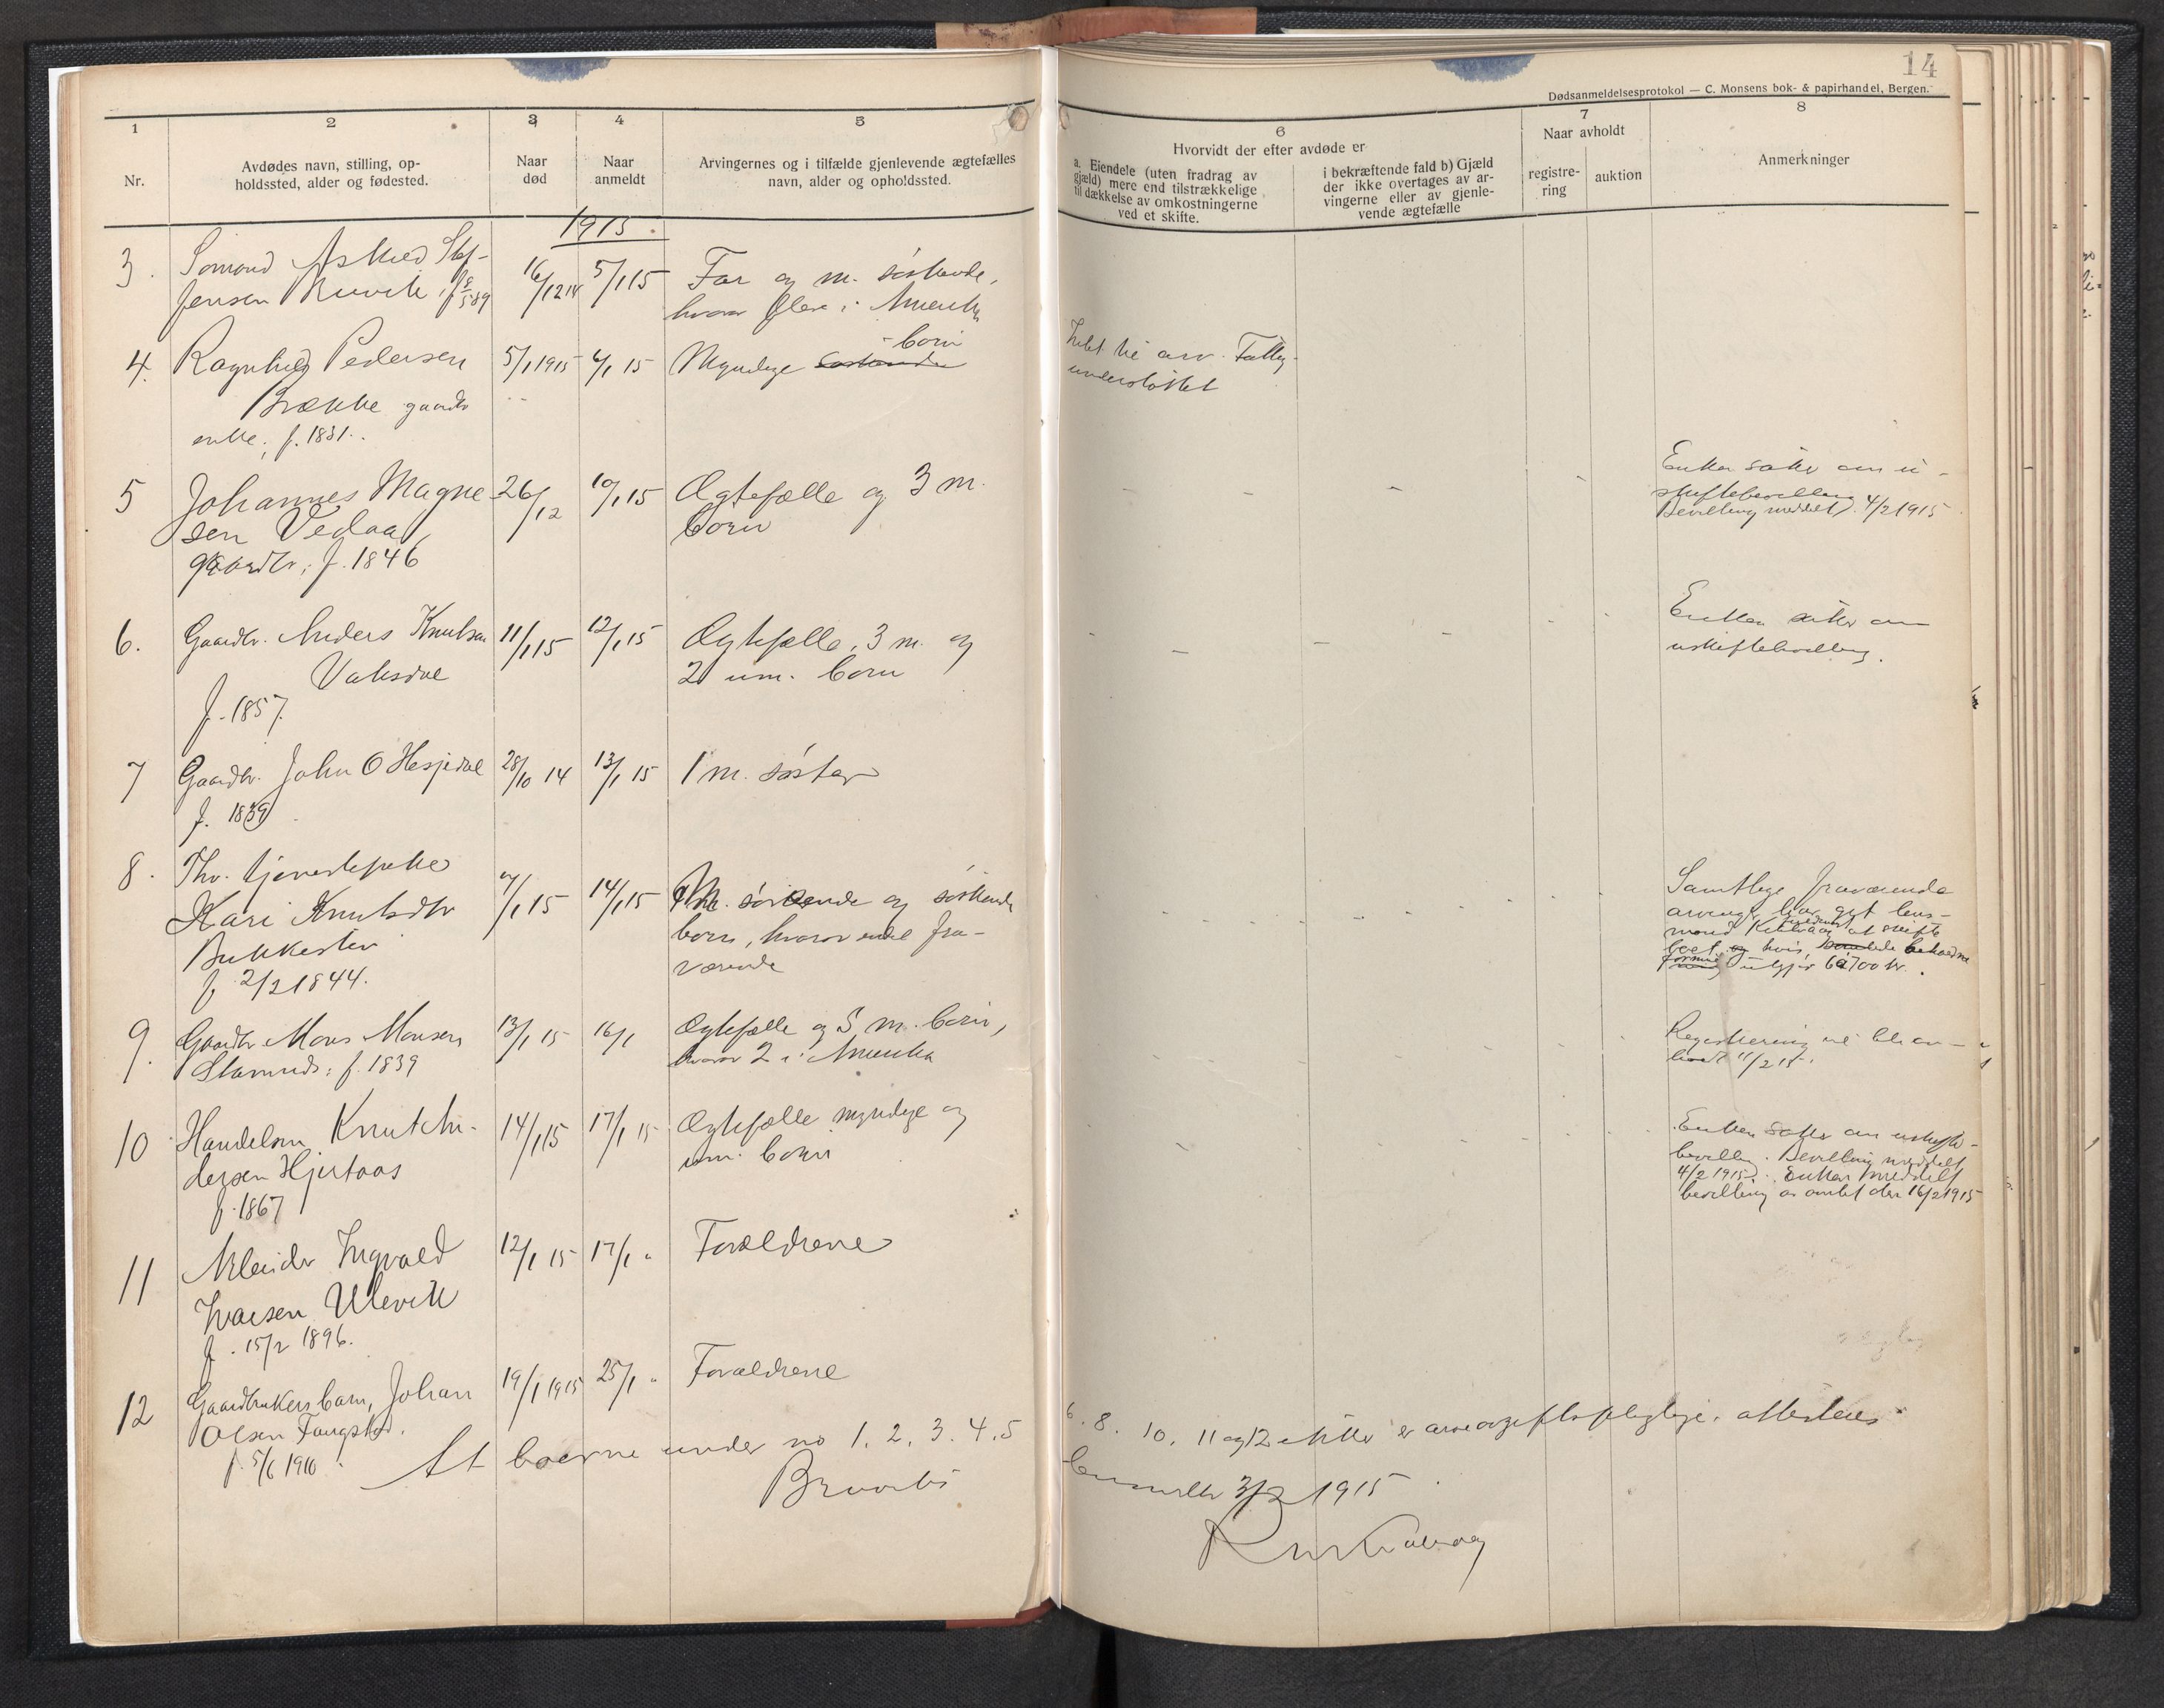 14
Dødsanmeldelsesprotokol — C. Monsens bok- & papirhandel, Bergen.
1
2
3
4
5
6
7
8
Nr.
Avdødes navn, stilling, op-
holdssted, alder og fødested.
Naar
død
Naar
anmeldt
Arvingernes og i tilfælde gjenlevende ægtefælles
navn, alder og opholdssted.
Hvorvidt der efter avdøde er
a. Eiendele (uten fradrag av
gjæld) mere end tilstrækkelige
til dækkelse av omkostningerne
ved et skifte.
i bekræftende fald b) Gjæld
der ikke overtages av ar-
vingerne eller av gjenle-
vende ægtefælle
Naar avholdt
registre-
ring
auktion
Anmerkninger
1915.
3. Sømand Askild Stef-
fensen Bruvik, f 8/5 89
16/12 14
5/1 15
Far og m. søskende,
hvorav flere i Amerika
4. Ragnhild Pedersen
Brække gaardbr
enke, f. 1831.
5/1 1915
6/1 15
Myndige søskende børn
Intet til arv. Fattig-
understøttet
5 Johannes Magne-
sen Vedaa,
gaardbr, f. 1846
26/12
10/1 15
Ægtefælle og 3 m.
børn
Enken søker om u-
skiftebevilling
Bevilling meddelt 4/2 1915
6. Gaardbr. Anders Knutsen
Vaksdal
f. 1857.
11/1 15
12/1 15
Ægtefælle, 3 m. og
2 um. børn
Enken søker om
uskiftebevilling.
7 Gaardbr. John O Hesjedal
f. 1839
28/10 14
13/1 15
1 m. søster
8. Fhv. tjenestepike
Kari Knutsdtr
Bukkesten
f 2/2 1844.
/1 15
14/1 15
m. søskende og søskende
børn, hvorav endel fra-
værende
Samtlige fraværende
arvinger har git lens-
mand at skifte
boet og hvis beholdne
formue utgjør 700 kr.
9. Gaardbr Mons Monsen
Stamnes: f. 1839
13/1 15
16/1
Ægtefælle og 5 m. børn,
hvorav 2 i Amerika
Registrering vil bli av-
holdt 11/2 15.
10 Handelsm. Knut An-
dersen Hjertaas
f. 1867
14/1 15
17/1 15
Ægtefælle myndige og
um. børn
Enken søker om uskifte-
bevilling. Bevilling meddelt
4/2 1915. Enken meddelt
bevilling av amtet den 16/2 1915
11 Arbeider Ingvald
Ivarsen Ulevik
f. 15/2 1896.
12/1 15
17/1 "
Forældrene
12 Gaardbrukers barn, Johan
Olsen Fangstad.
f. 5/6 1910
19/1 1915
25/1 "
Forældrene
At boerne under no 1. 2. 3. 4. 5
6. 8. 10. 11 og 12 ikke er arveavgiftspligtige, attesteres
Bruviks
lensmilk 3/2 1915